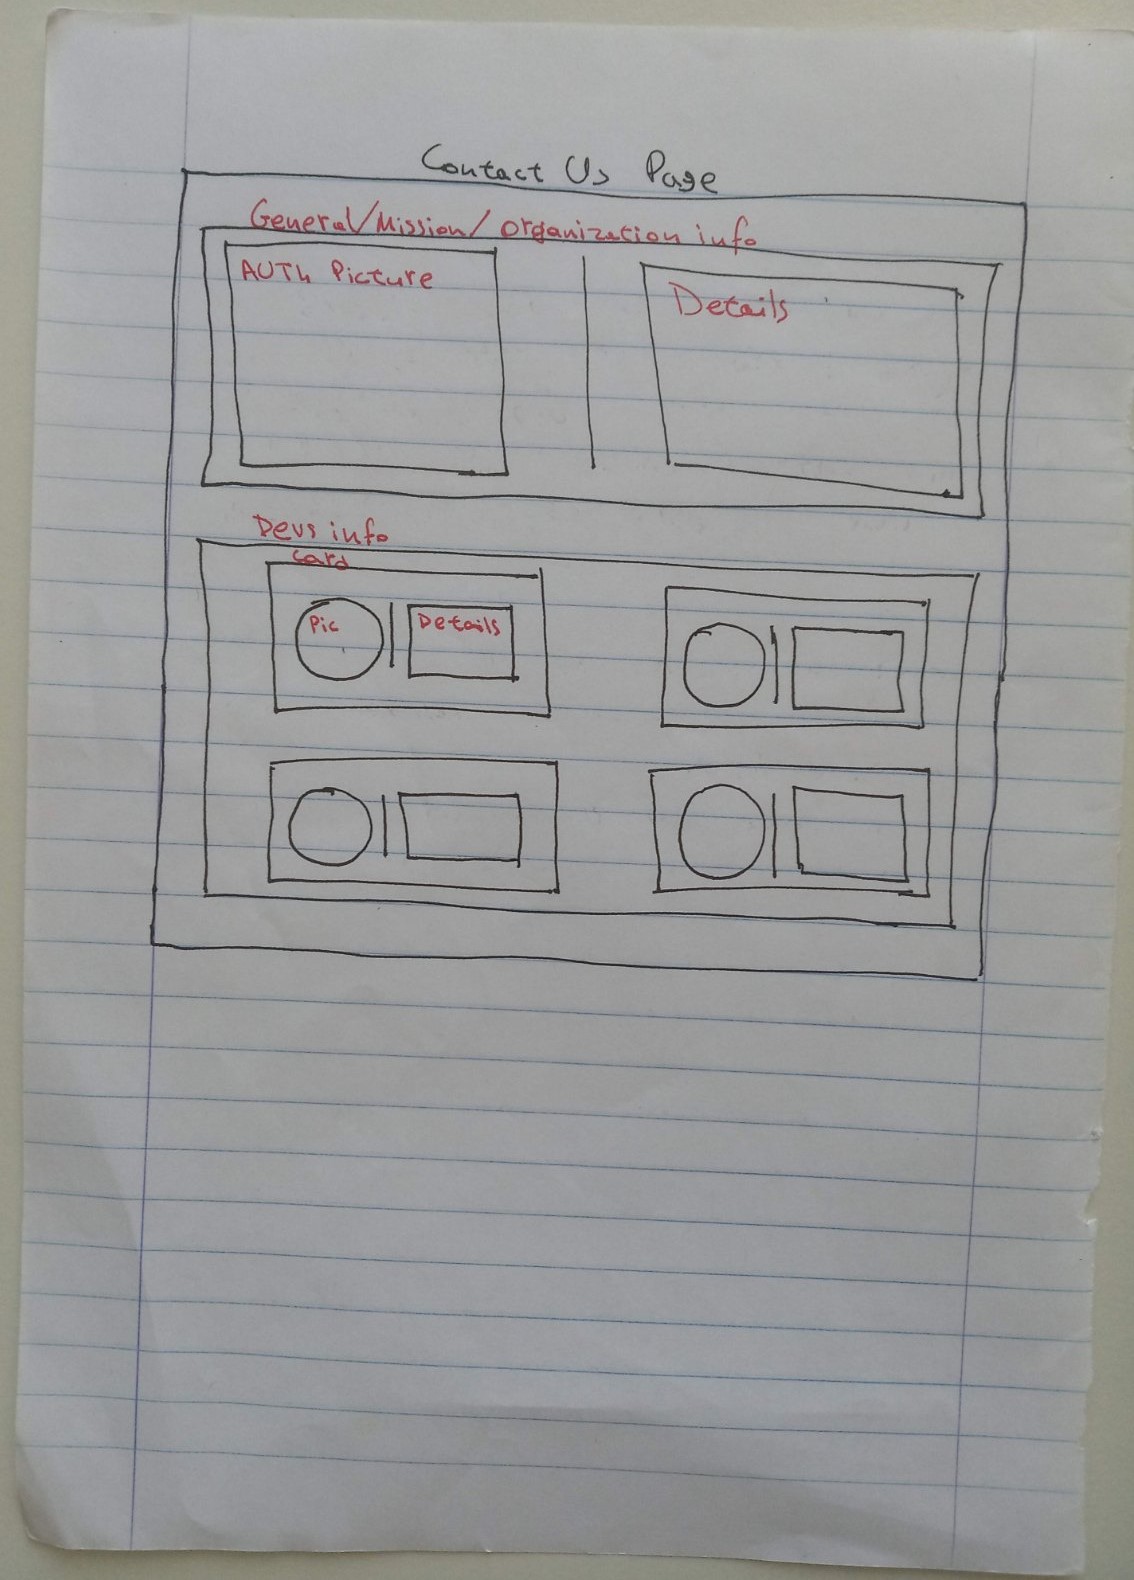 Contact Us Page
General/Mission/Organization info
AUTh Picture
Details
Devs info
card
Pic
Details